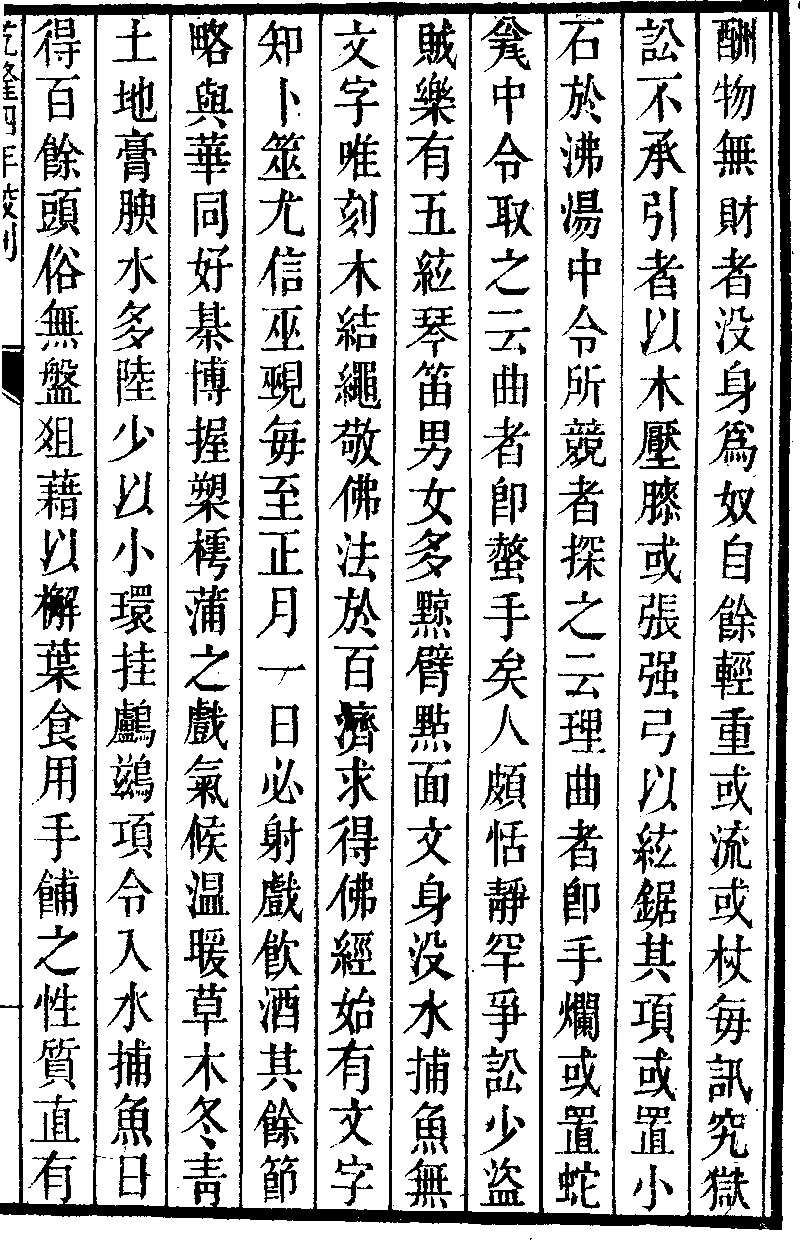 酬物無財者没身爲奴自餘輕重或流或杖每訊究獄
訟不承引者以木壓膝或張强弓以絃鋸其項或置小
石於沸湯中令所競者探之云理曲者卽手爛或置蛇
瓮中令取之云曲者卽螫手矣人頗恬靜罕爭訟少盜
賊樂有五絃琴笛男女多黥臂點面文身没水捕魚無
文字唯刻木結繩敬佛法於百濟求得佛經始有文字
知卜筮尤信巫覡每至正月一日必射戲飮酒其餘節
略與華同好棊博握槊樗蒲之戲氣候温暖草木冬青
土地膏腴水多陸少以小環挂鸕鷀項令入水捕魚日
得百餘頭俗無盤俎藉以檞葉食用手餔之性質直有
乾隆四年校刊